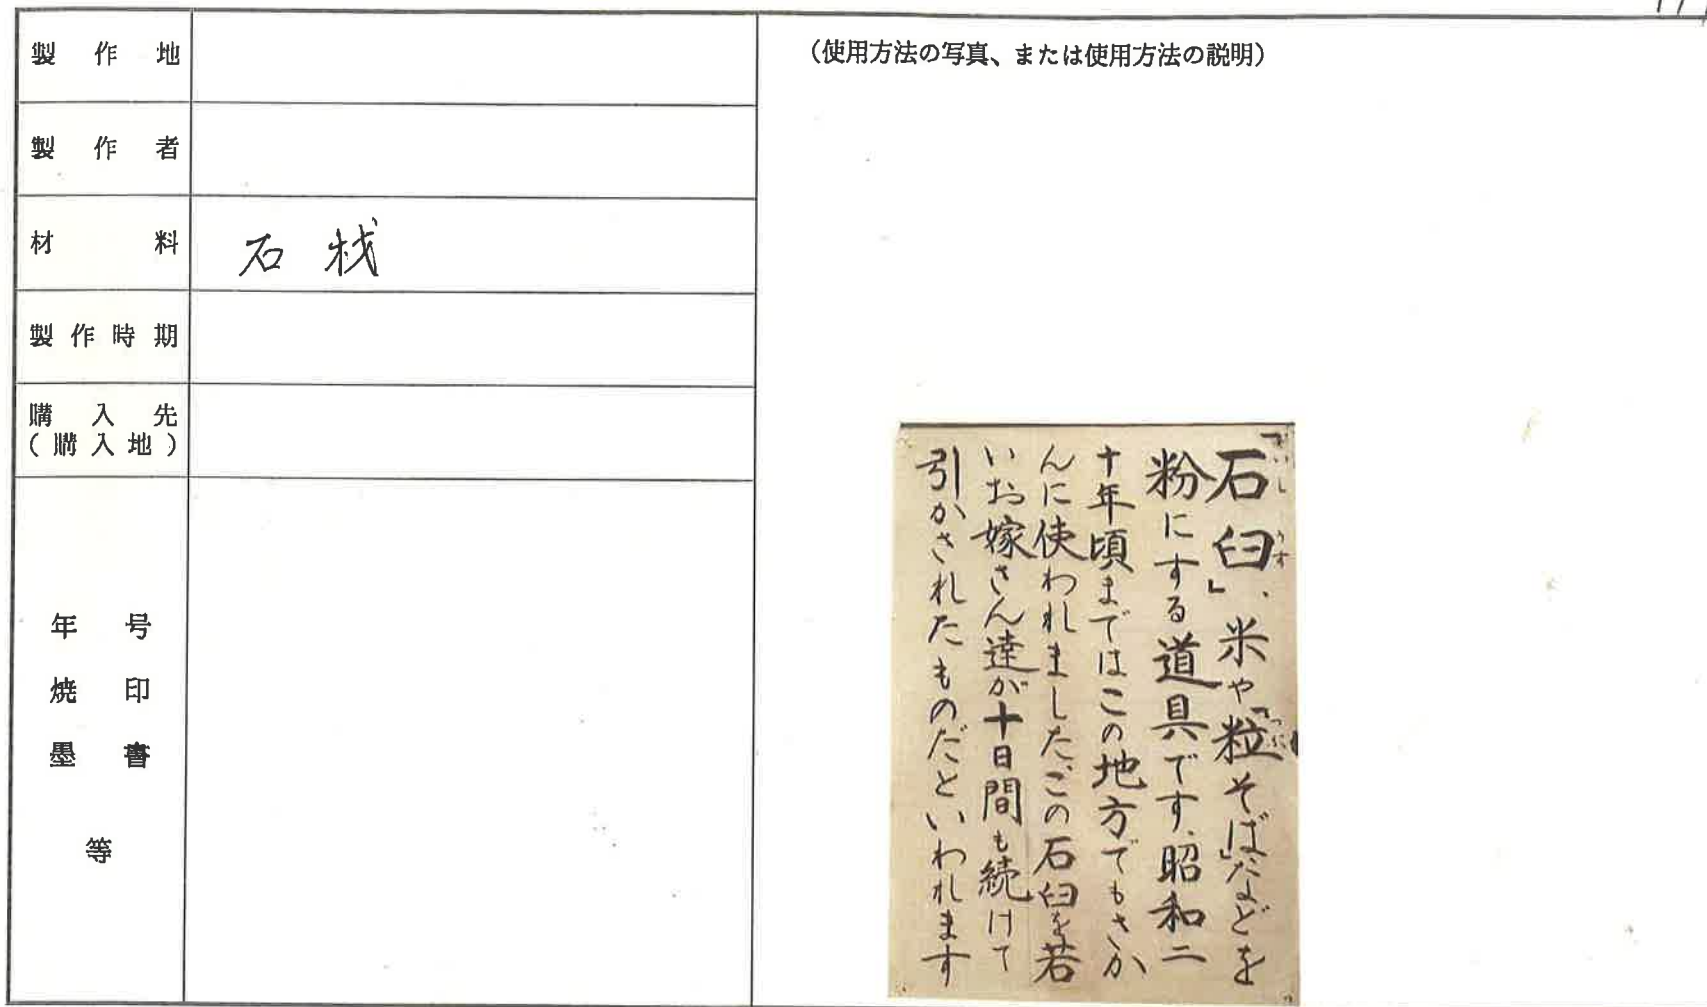 製作地
製作者
材料
石材
製作時期
購入先
(購入地)
年号
焼印
墨書
等
(使用方法の写真、または使用方法の説明)
「石臼」、米や「粒そば」などを
粉にする道具です、昭和二
十年頃まではこの地方でもさか
んに使われました、この石臼を若
いお嫁さん達が十日間も続けて
引かされたものだといわれます